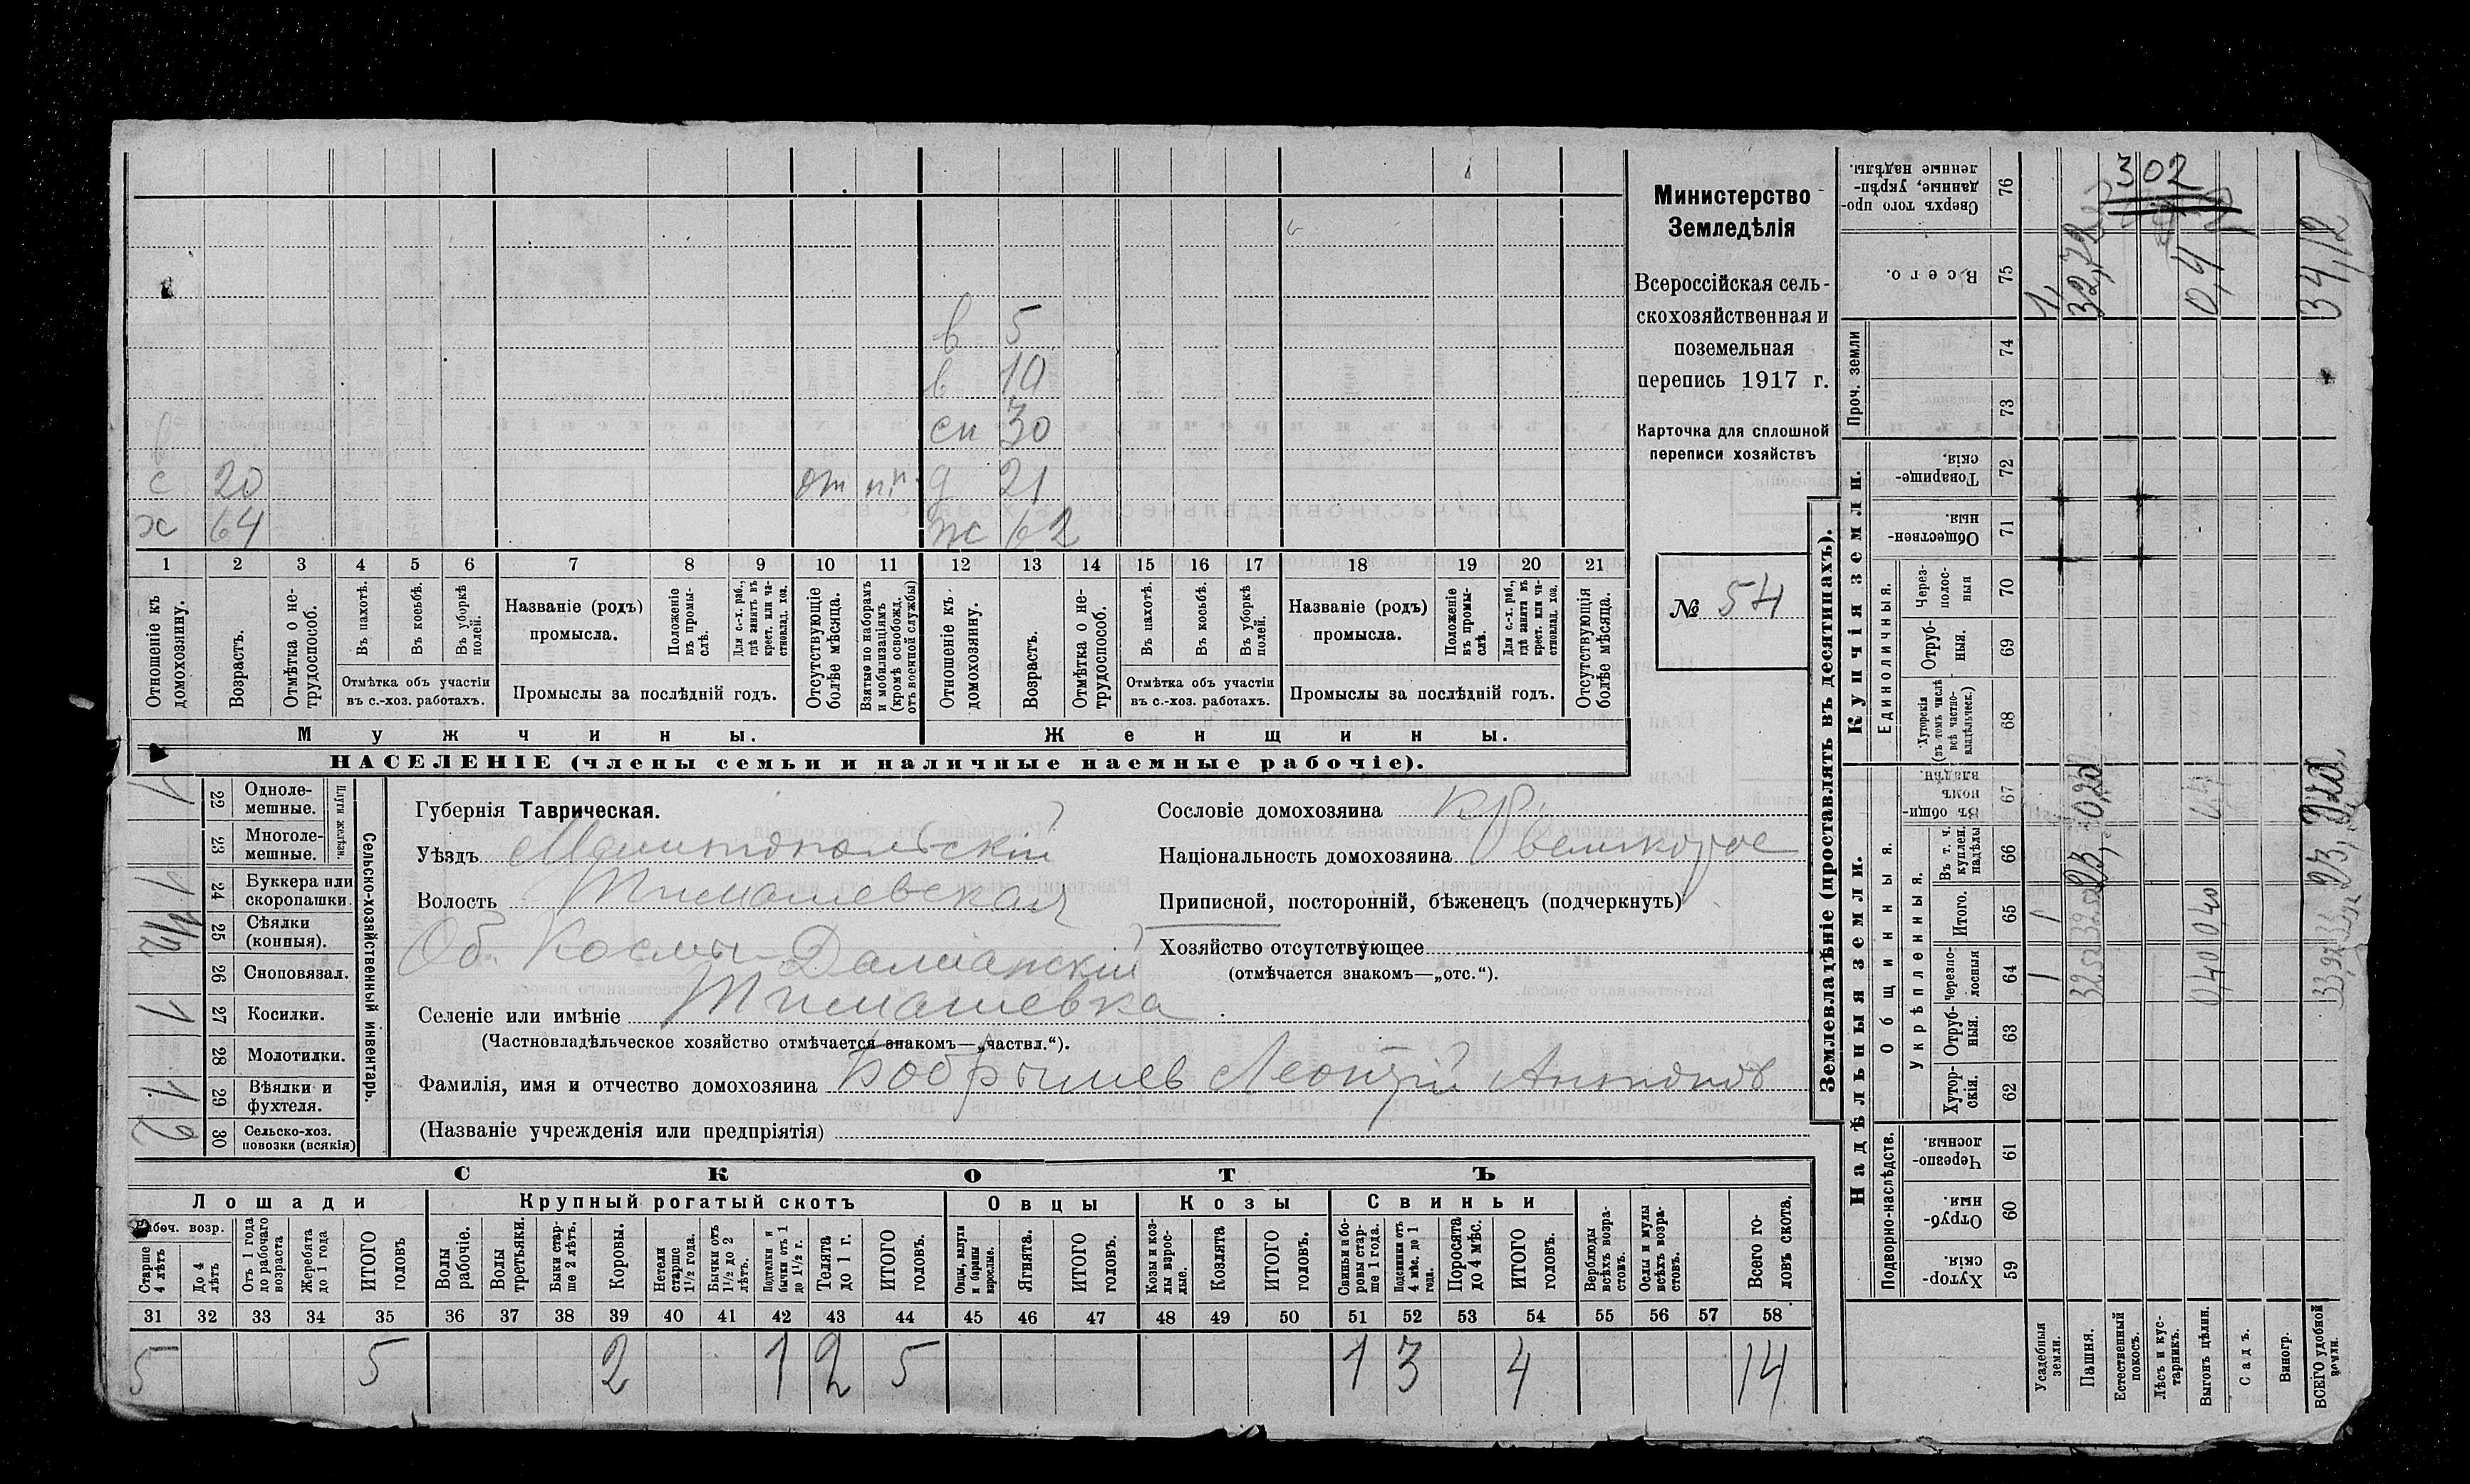 302
в 5
в 10
сн 30
с 20 от нп д 21
х 64 ж 62
1 2 3 4 5 6 7 8 9 10 11 12 13 14 15 16 17 18 19 20 21
Отношеніе къ домохозяину.
Возрастъ.
Отмѣтка о не-трудоспособ.
Въ пахотѣ.
Въ косьбѣ.
Въ уборкѣ полей.
Отмѣтка объ участіи
въ с.-хоз. работахъ.
Названіе (родъ)
промысла.
Положеніе въ промы-слѣ.
Для с.-х. раб., гдѣ занятъ въ крест. или ча-стновлад. хоз.
Промыслы за послѣдній годъ.
Отсутствующіе болѣе мѣсяца.
Взятые по наборамъ и мобилизаціямъ (кромѣ освобожд. отъ военной службы)
Отношеніе къ домохозяину.
Возрастъ.
Отмѣтка о не-трудоспособ.
Въ пахотѣ.
Въ косьбѣ.
Въ уборкѣ полей.
Отмѣтка объ участіи
въ с.-хоз. работахъ.
Названіе (родъ)
промысла.
Положеніе въ промы-слѣ.
Для с.-х. раб., гдѣ занята въ крест. или ча-стновлад. хоз.
Промыслы за послѣдній годъ.
Отсутствующія болѣе мѣсяца.
Мужчины. Женщины.
НАСЕЛЕНІЕ (члены семьи и наличные наемные рабочіе).
Министерство
Земледѣлія
Всероссійская сель-
скохозяйственная и
поземельная
перепись 1917 г.
Карточка для сплошной
переписи хозяйствъ
№ 54
Сельско-хозяйственный инвентарь.
Плуги желѣзн.
1 22 Однолемешные.
23 Многолемешные.
1 24 Буккера или скоропашки.
25 Сѣялки (конныя).
26 Сноповязал.
1 27 Косилки.
28 Молотилки.
1 29 Вѣялки и фухтеля.
2 30 Сельско-хоз. повозки (всякія)
Губернія Таврическая.
Уѣздъ Мелитопольскій
Волость Тимашевская
Об. Космы-Даміанскій
Селеніе или имѣніе Тимашевка
(Частновладѣльческое хозяйство отмѣчается знакомъ—„частвл.“).
Фамилія, имя и отчество домохозяина Бобрышев Леонтій Антонов
(Названіе учрежденія или предпріятія)
Сословіе домохозяина кр.
Національность домохозяина великорос
Приписной, посторонній, бѣженецъ (подчеркнуть)
Хозяйство отсутствующее
(отмѣчается знакомъ—„отс.“).
СКОТЪ
Лошади Крупный рогатый скотъ Овцы Козы Свиньи
Рабоч. возр.
Старше 4 лѣтъ
До 4 лѣтъ
Отъ 1 года до рабочаго возраста
Жеребята до 1 года
ИТОГО головъ
Волы рабочіе.
Волы третьяки.
Быки стар-ше 2 лѣтъ.
Коровы.
Нетели старше 1½ года.
Бычки отъ 1½ до 2 лѣтъ.
Подтелки и бычки отъ 1 до 1½ г.
Телята до 1 г.
ИТОГО головъ.
Овцы, валухи и бараны взрослые.
Ягнята.
ИТОГО головъ.
Козы и коз-лы взрос-лые.
Козлята
ИТОГО головъ.
Свиньи и бо-ровы стар-ше 1 года.
Подсвинки отъ 4 мѣс. до 1 года.
Поросята до 4 мѣс.
ИТОГО головъ.
Верблюды всѣхъ возра-стовъ.
Ослы и мулы всѣхъ возра-стовъ.
Всего го-ловъ скота.
31 32 33 34 35 36 37 38 39 40 41 42 43 44 45 46 47 48 49 50 51 52 53 54 55 56 57 58
5 5 2 1 2 5 1 3 4 14
Землевладѣніе (проставлять въ десятинахъ).
Надѣльныя земли.
Купчія земли.
Проч. земли
Подворно-наслѣдств.
Общинныя.
Укрѣпленныя.
Единоличныя.
59 Хутор-скія.
60 Отруб-ныя.
61 Черезпо-лосныя.
62 Хутор-скія.
63 Отруб-ныя.
64 Черезпо-лосныя 1 32,52 0,40
65 Итого. 1 32,52 0,40
66 Въ т. ч. куплен. надѣлы
67 Въ общин-номъ владѣн.
68 Хуторскія (въ томъ числѣ всѣ частно-владѣльческ.)
69 Отруб-ныя.
70 Через-полос-ныя
71 Обществен-ныя.
72 Товарище-скія.
73
74
75 Всего. 1, 32,72 0,4 34,12
76 Сверхъ того про-данные, укрѣп-ленные надѣлы.
Усадебныя земли.
Пашня.
Естественный покосъ.
Лѣсъ и кус-тарникъ.
Выгонъ цѣлин.
Садъ.
Виногр.
ВСЕГО удобной земли.